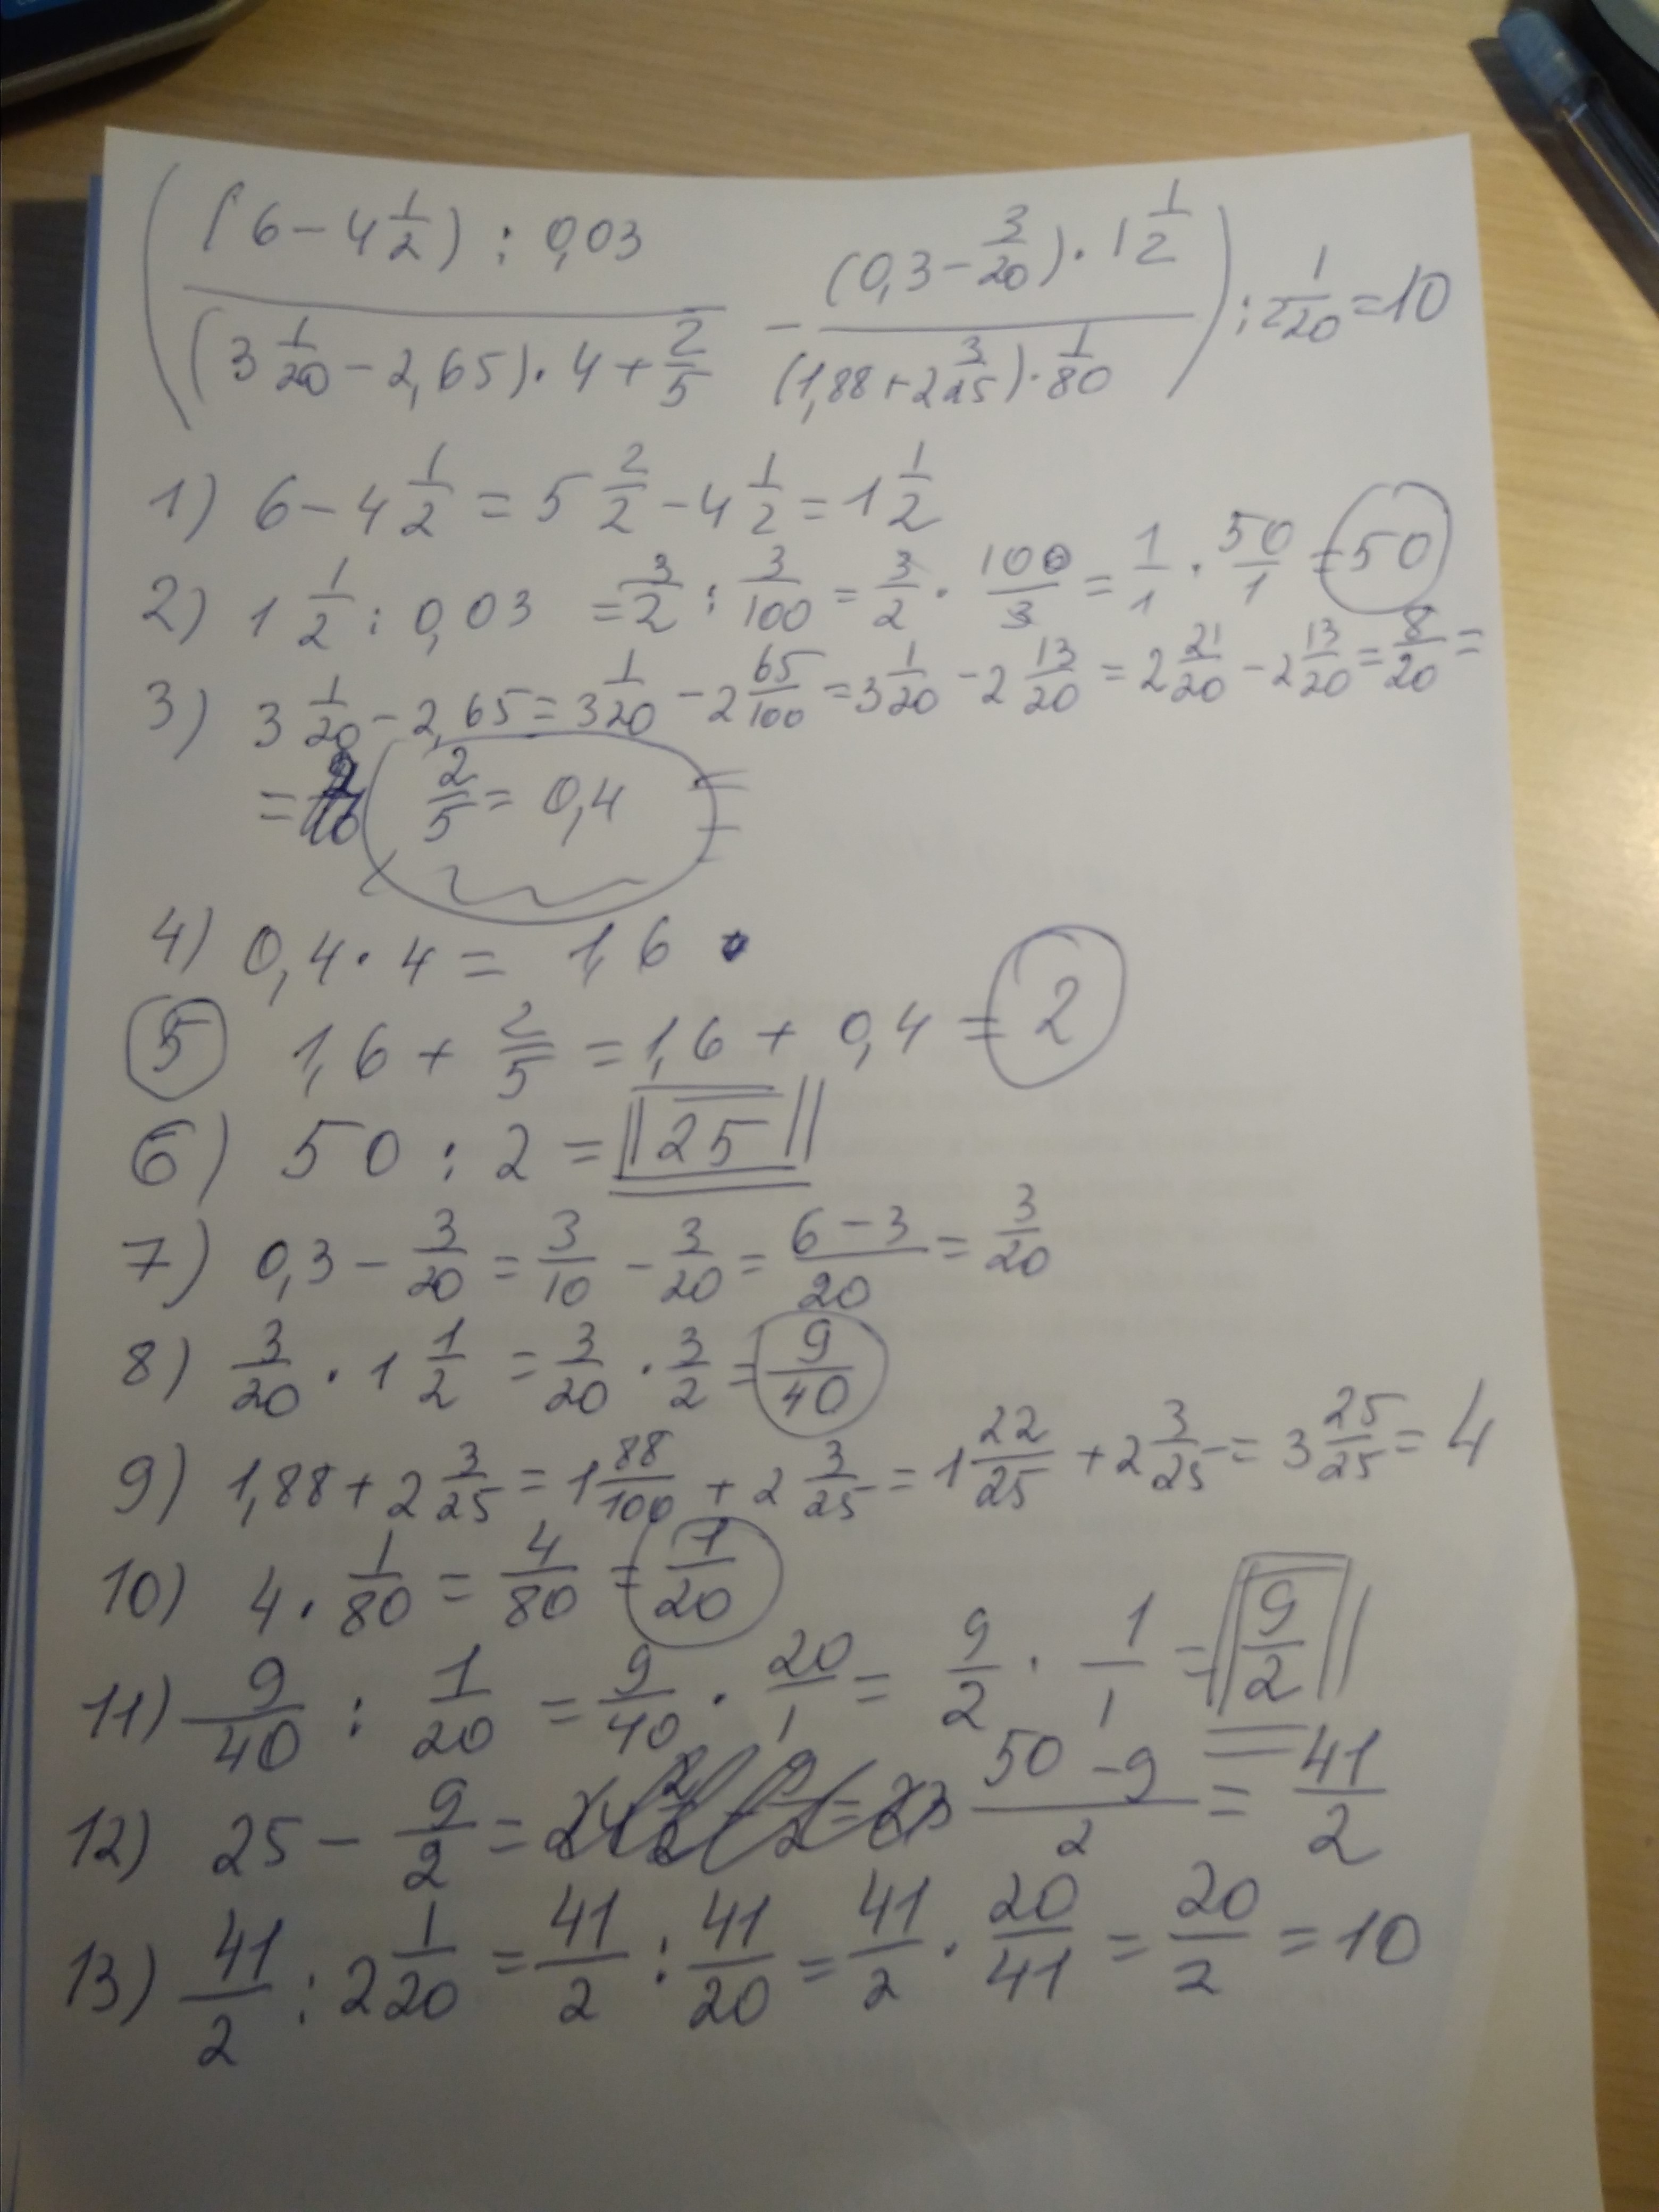 ( (6 - 4 1/2) : 0,03 / (3 1/20 - 2,65) · 4 + 2/5 - (0,3 - 3/20) · 1 1/2 / (1,88 + 2 3/25) · 1/80 ) : 2 1/20 = 10
1) 6 - 4 1/2 = 5 2/2 - 4 1/2 = 1 1/2
2) 1 1/2 : 0,03 = 3/2 : 3/100 = 3/2 · 100/3 = 1/1 · 50/1 = 50
3) 3 1/20 - 2,65 = 3 1/20 - 2 65/100 = 3 1/20 - 2 13/20 = 2 21/20 - 2 13/20 = 8/20 =
= 2/5 = 0,4 =
4) 0,4 · 4 = 1,6
5 1,6 + 2/5 = 1,6 + 0,4 = 2
6) 50 : 2 = 25
7) 0,3 - 3/20 = 3/10 - 3/20 = 6 - 3/20 = 3/20
8) 3/20 · 1 1/2 = 3/20 · 3/2 = 9/40
9) 1,88 + 2 3/25 = 1 88/100 + 2 3/25 = 1 22/25 + 2 3/25 = 3 25/25 = 4
10) 4 · 1/80 = 4/80 = 1/20
11) 9/40 : 1/20 = 9/40 · 20/1 = 9/2 · 1/1 = 9/2
12) 25 - 9/2 = 50 - 9/2 = 41/2
13) 41/2 : 2 1/20 = 41/2 : 41/20 = 41/2 · 20/41 = 20/2 = 10